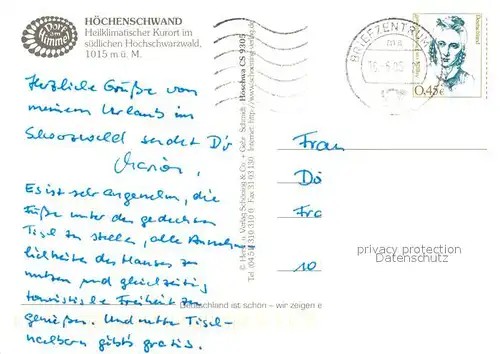 Dorf am Himmel
HÖCHENSCHWAND
Heilklimatischer Kurort im
südlichen Hochschwarzwald,
1015 m ü. M.
Herzliche Grüße von
meinem Urlaub im
Schwarzwald sendet Dir
Marion.
Es ist sehr angenehm, die
Füße unter den gedeckten
Tisch zu stellen, alle Annehm-
lichkeiten des Hauses zu
nutzen und gleichzeitig
touristische Freiheit zu
genießen. Und nette Tisch-
nachbarn gibt's gratis.
© Herst. u. Verlag Schöning & Co. + Gebr. Schmidt
Höschwa CS 9305
Internet: http://www.schoening-verlag.de
Deutschland ist schön – wir zeigen e
BRIEFZENTRUM
Deutschland
0,45€
Frau
Dö
Fra
10
privacy protection
Datenschutz